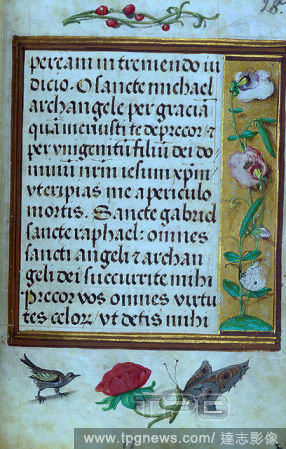 28.
pereàm in tremendo iu
dicio. O sancte michael
archangele per gracia
quã meruisti te deprecor ⁊
per vnigenitũ filiũ dei do
minũ nrm iesum xpm̃
vt eripias me a periculo
mortis. Sancte gabriel
sancte raphael: omnes
sancti angeli ⁊ archan
geli dei succurrite mihi
Precor vos omnes virtu
tes celor̃ vt detis mihi
TPG
www.tpgnews.com / 達志影像